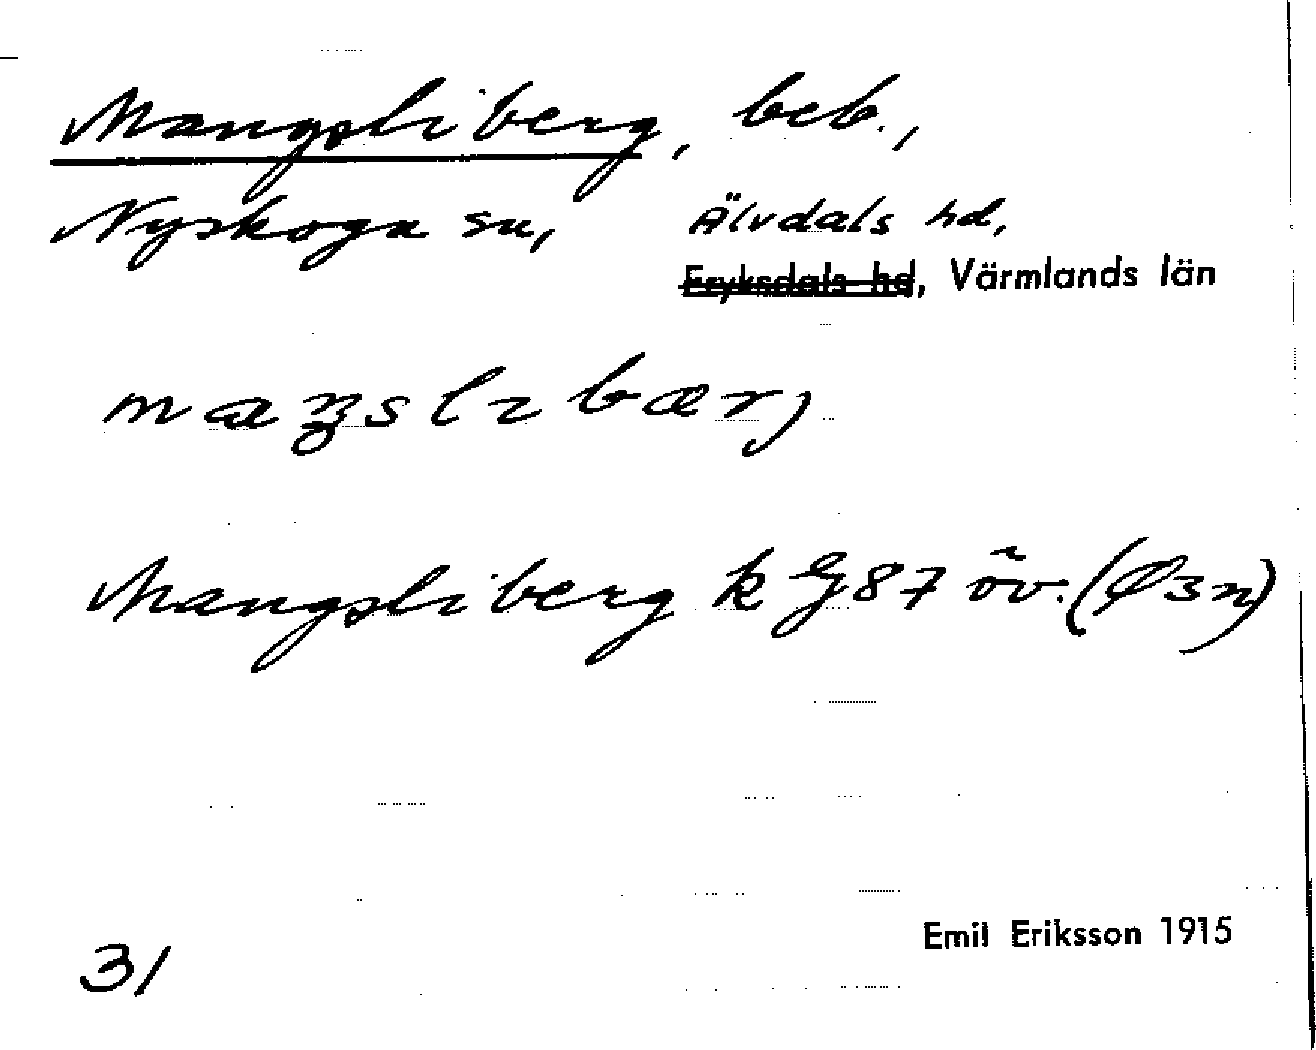 Mangsliberg, beb.,
Nyskoga sn, Älvdals hd,
Fryksdals hd, Värmlands län
maŋslıbærj
Mangsliberg k G 87 öv. (Ø3n)
Emil Eriksson 1915
31